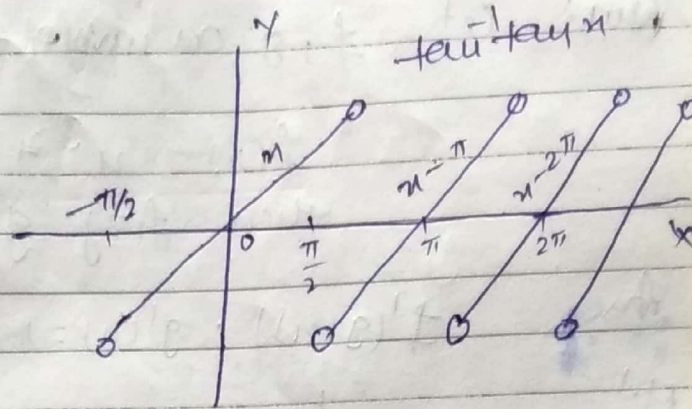 Y
tan⁻¹ tan x
x
x-π
x-2π
-π/2
0
π/2
π
2π
X